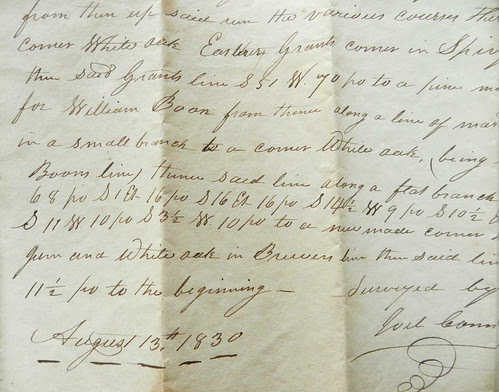 from then up said run the various courses the
corner White oak Easleys Grants corner in Spiv
then said Grants line S 51 W. 70 po to a pine ma
for William Boon from thence along a line of mar
in a small branch to a corner White oak, (being
Boons line) thence said line along a flat branch
68 po S 1 Et 16 po S 16 Et 16 po S 14½ W 9 po S 10½
S 11 W 10 po S 3½ W 10 po to a new made corner
gum and White oak in Brewers line then said lin
11½ po to the beginning — Surveyed by
August 13th 1830 Joel